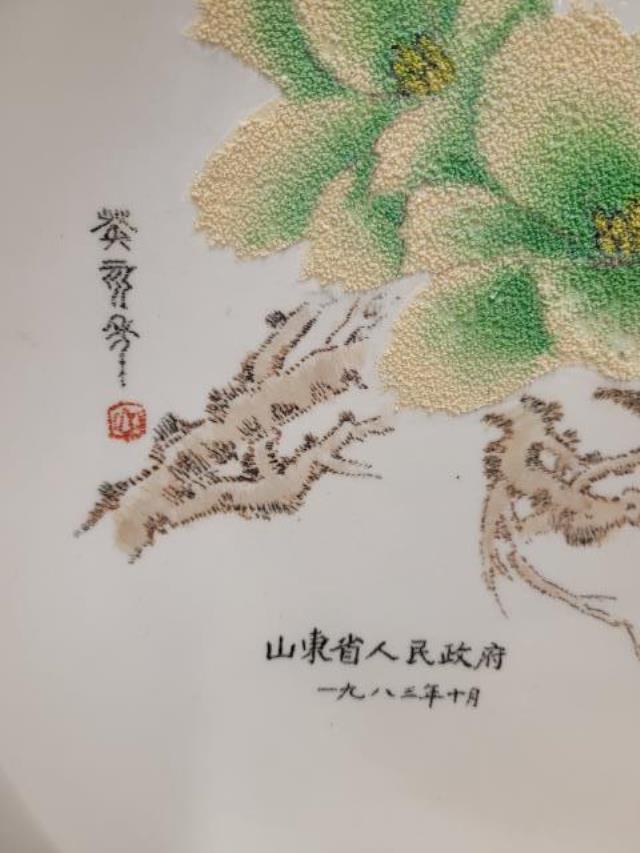 癸亥年
山東省人民政府
一九八三年十月